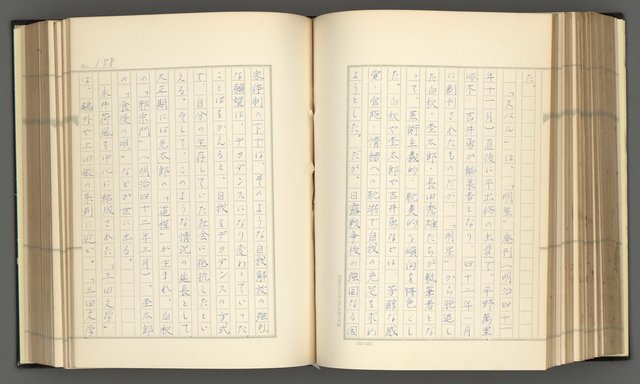 た。
「スバル」は、「明星」廃刊(明治四十一
年十一月)直後に平出修の出資で、平野萬里・
啄木・吉井勇が編集者となり、四十二年一月
に創刊されたものだが、「明星」から脱退し
た白秋・杢太郎・長田秀雄たちが執筆者とな
って、芸術主義的・耽美的な傾向を特色とし
た。白秋や杢太郎や吉井勇などは、芳醇な感
覚・官能・情緒への耽溺で自我の充足を求め
ようとした。だが、日露戦争後の強固なる国
No. 158
家体制の下では、そのような自我解放の強烈
な願望は、デカダンスになり変わっていった
ことばをかえると、自我をデカダンスの方式
で、自分の生存していた社会へ抵抗したとい
える。そして、このような情況の延長として
大正期には光太郎の「道程」が生まれ、白秋
の「邪宗門」(明治四十二年三月)、杢太郎
の「食後の唄」などが世に出る。
永井荷風を中心に結成された「三田文学」
は、鷗外や上田敏の系列に近い。「三田文学